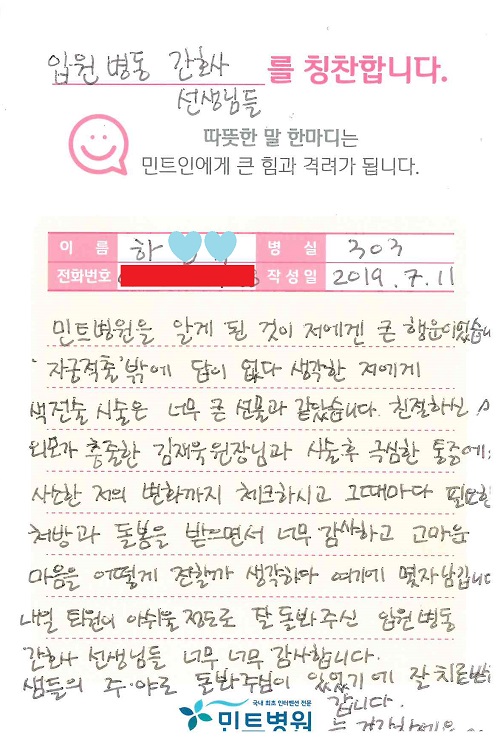 입원 병동 간호사 를 칭찬합니다.
선생님들
따뜻한 말 한마디는
민트인에게 큰 힘과 격려가 됩니다.
이 름 하 병 실 303
전화번호 작성일 2019.7.11
민트병원을 알게 된 것이 저에겐 큰 행운이었습니
'자궁적출'밖에 답이 없다 생각한 저에게
색전술 시술은 너무 큰 선물과 같았습니다. 친절하신
외모가 출중한 김재욱원장님과 시술후 극심한 통증에
사소한 저의 변화까지 체크하시고 그때마다 필요한
처방과 돌봄을 받으면서 너무 감사하고 고마운
마음을 어떻게 전할까 생각하다 여기에 몇자 남깁니다
내일 퇴원이 아쉬울 정도로 잘 돌봐주신 입원병동
간호사 선생님들 너무 너무 감사합니다.
샘들의 주·야로 돌봐주심이 있었기에 잘 치료받
갑니다.
국내 최초 인터벤션 전문
민트병원